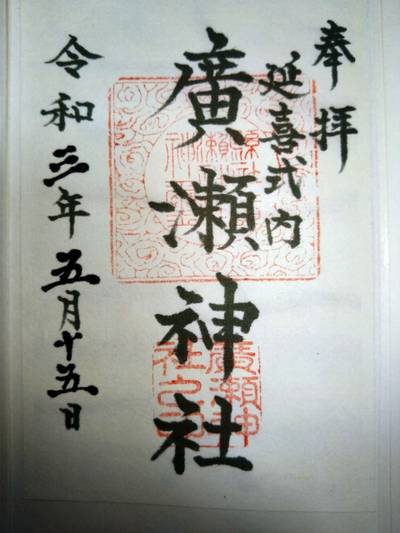 奉拝
延喜式内
廣瀬神社
令和三年五月十五日
廣瀬神社之印